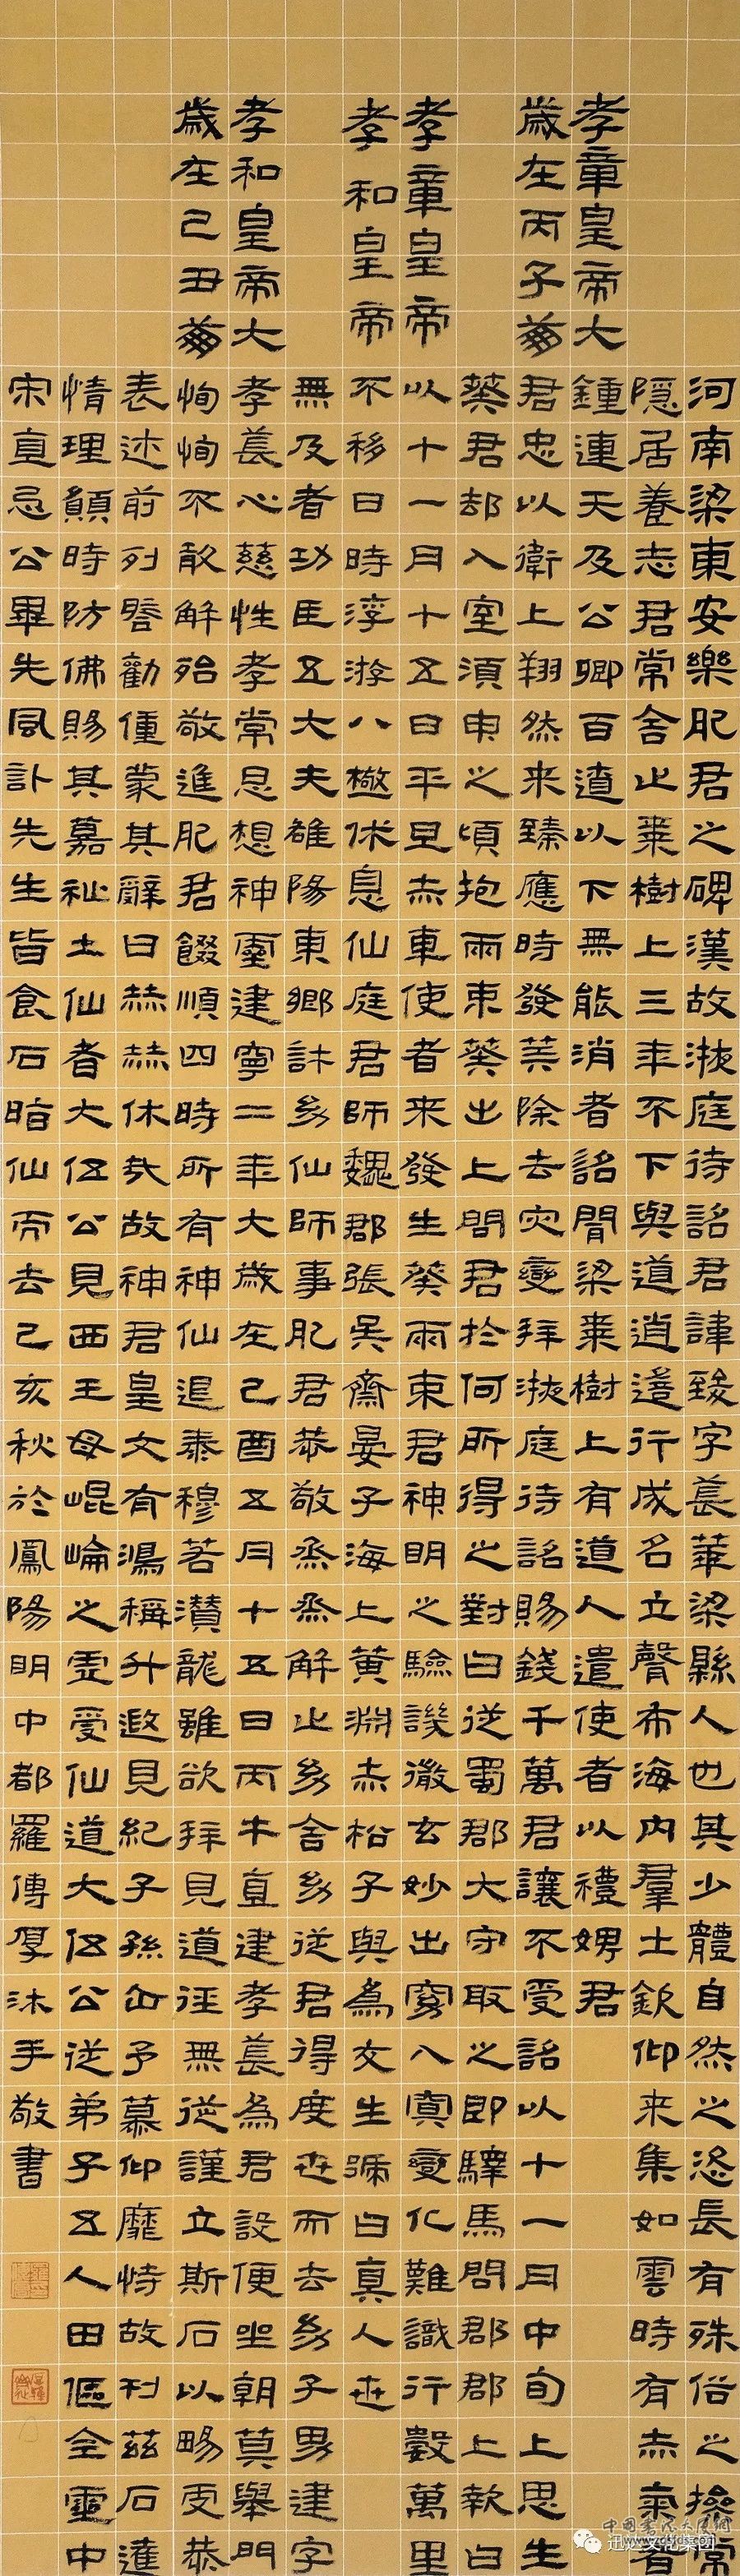 孝章皇帝大
歲在丙子崩
孝章皇帝
孝和皇帝
孝和皇帝大
歲在己丑崩
河南梁東安樂肥君之碑漢故掖庭待詔君諱致字萇華梁縣人也其少體自然之恣長有殊俗之操常
隱居養志君常舍止棗樹上三年不下與道逍遙行成名立聲布海內群士欽仰來集如雲時有赤氣著
鍾連天及公卿百遼以下無能消者詔聞梁棗樹上有道人遣使者以禮娉君
君忠以衛上翔然來臻應時發筭除去灾變拜掖庭待詔賜錢千萬君讓不受詔以十一月中旬上思生
葵君却入室須臾之頃抱兩束葵出上問君於何所得之對曰從蜀郡大守取之即驛馬問郡郡上報曰
以十一月十五日平旦赤車使者來發生葵兩束君神明之驗譏徹玄妙出窈入冥變化難識行數萬里
不移日時浮游八極休息仙庭君師魏郡張吳齋晏子海上黃淵赤松子與為友生號曰真人世
無及者功臣五大夫雒陽東鄉許幼仙師事肥君恭敬烝烝解止幼舍幼從君得度世而去幼子男建字
孝萇心慈性孝常思想神靈建寧二年大歲在己酉五月十五日丙午直建孝萇為君設便坐朝莫舉門
恂恂不敢解殆敬進肥君餟順四時所有神仙退泰穆若潛龍雖欲拜見道徑無從謹立斯石以暢虔恭
表述前列啓勸僮蒙其辭曰赫赫休哉故神君皇父有鴻稱升遐見紀子孫企予慕仰靡恃故刊茲石達
情理願時防佛賜其嘉祉土仙者大伍公見西王母崐崘之虛受仙道大伍公從弟子五人田傴全雷中
宋直忌公畢先風許先生皆食石脂仙而去己亥秋於鳳陽明中都羅傳厚沐手敬書